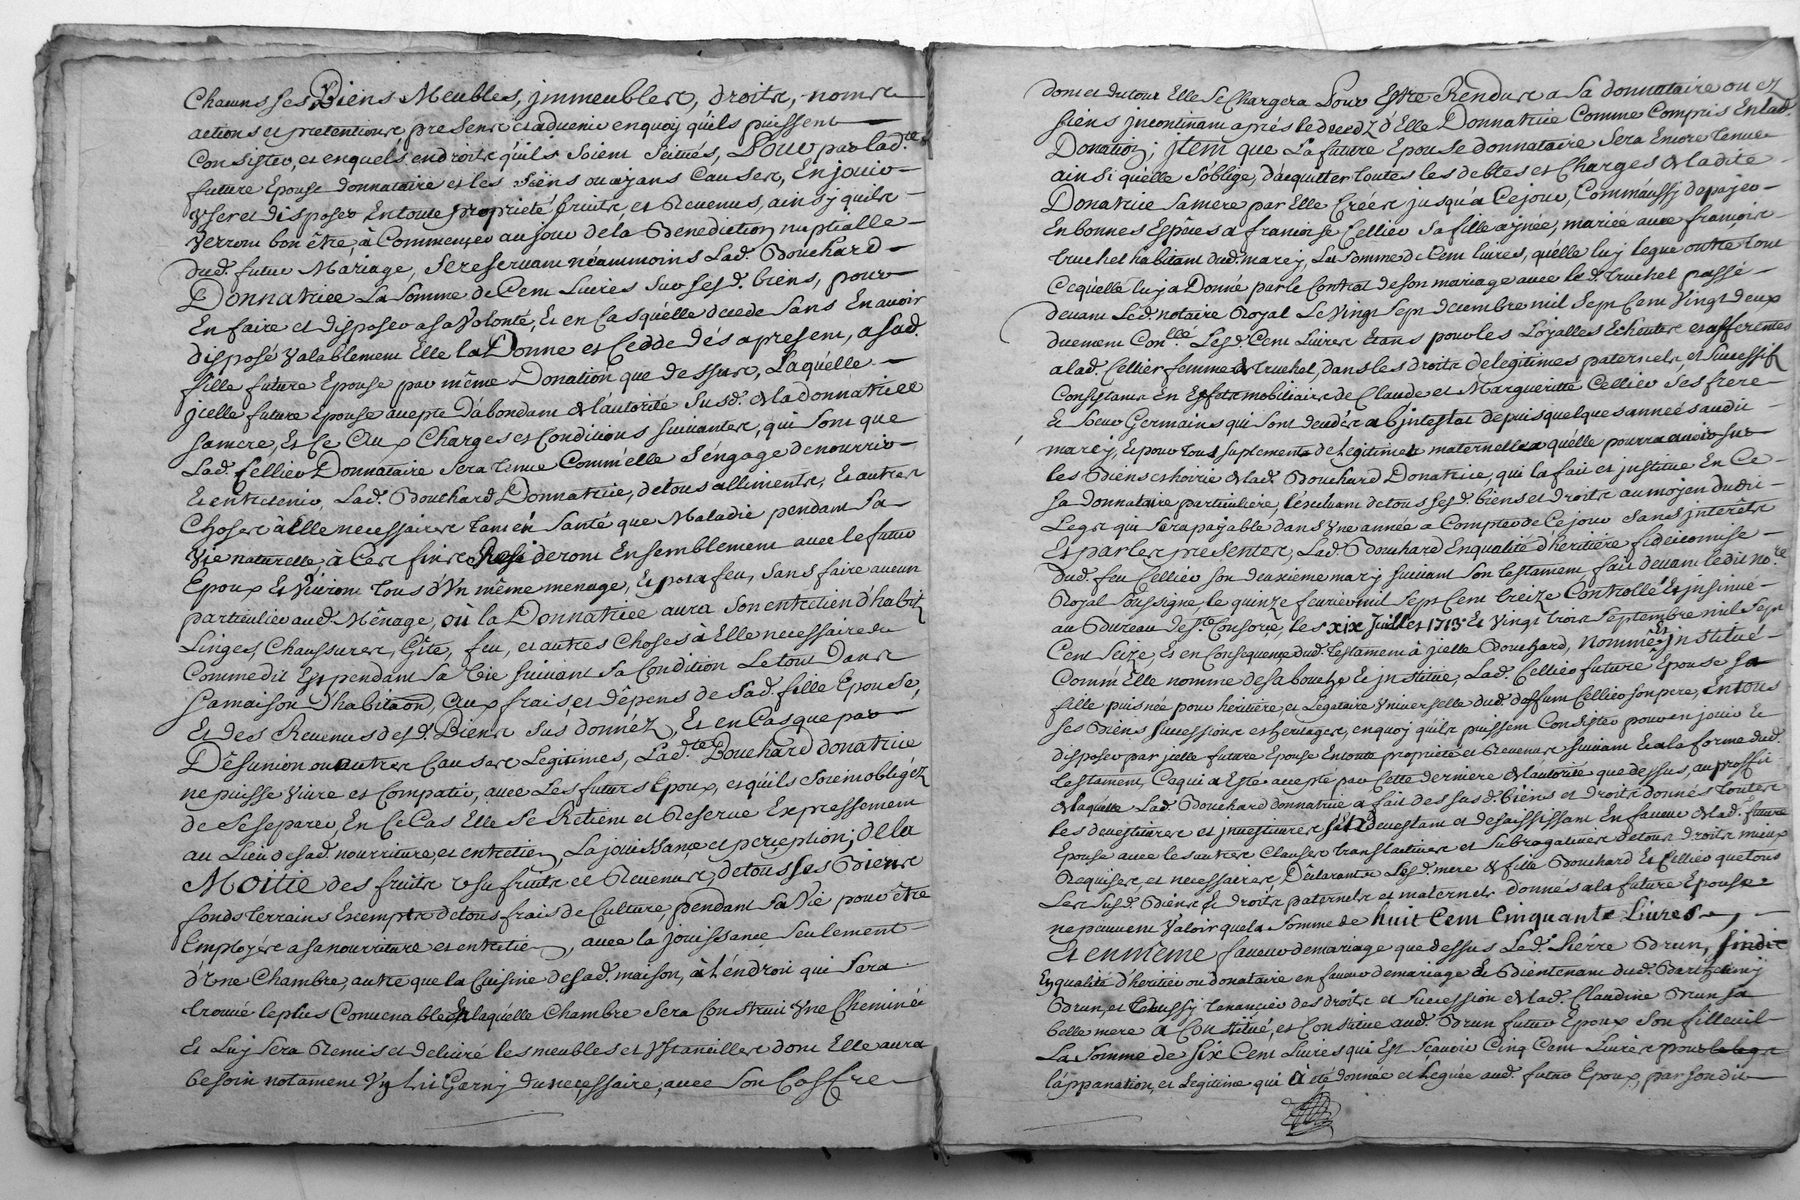 Chacuns ses Biens Meubles, jmmeubles, droits, noms
actions et pretentions presens et aduenir en quoy quils puissent
Consister, et en quels endroits quils soient scitués, Pour par lad.te
future Epouse donnataire et les siens ou ayans Causes, En jouir
Vser et disposer En toute propriété fruits et Reuenus, ainsy quils
Verront bon être à Commencer au jour de la Benediction nuptialle
dud. futur Mariage, Se reseruant néammoins Lad. Bouchard
Donnatrice La Somme de Cent Liures Sur sesd. biens, pour
En faire et disposer a sa Volonté, Et en Cas quélle decede Sans En auoir
disposé Valablement Elle la Donne et Cedde dés a present, a sad.
fille future Epouse par même Donation que dessus, Laquélle
jcelle future Epouse accepte d'abondant de l'autorité susd. de la donnatrice
sa mere, Et Ce Aux Charges et Conditions suiuantes, qui sont que
Lad. Cellier Donnataire sera tenue Comm'elle s'éngage de nourrir
Et entretenir Lad. Bouchard Donnatrice, de tous alliments, Et autres
Choses à Elle necessaires tant en Santé que Maladie pendant Sa
Vie naturelle, à Ces fins Resideront Ensemblement auec le futur
Epoux Et Viuront tous d'Vn même menage, Et pot a feu, Sans faire aucun
particulier aud. Mênage, où la Donnatrice aura Son entretien d'habitz
Linges, Chaussures, Gîte, feu, et autres Choses à Elle necessaire du
Comme dit Est pendant Sa Vie suiuant Sa Condition Le tout Dans
sa maison d'habitaon, Aux frais et dêpens de Sad. fille Epouse,
Et des Reuenus desd. Biens sus donnéz, Et en Cas que par
Désunion ou autres Causes Legitimes, Lad.te Bouchard donatrice
ne puisse Viure et Compatir, auec Les futurs Epoux, et quils soient obligéz
de Se separer, En Ce Cas Elle Se Retient et Reserue Expressement
au Lieu de sad. nourriture, et entretien, La jouissance et perception; de la
Moitié des fruits Vsufruits et Reuenus, de tous ses Biens
fonds terrains Exempts de tous frais de Culture, pendant Sa Vie pour être
Employés a sa nourriture et entretien, auec la jouissance Seulement
d'Vne Chambre, autre que la Cuisine de sad. maison, à L'éndroit qui Sera
trouué le plus Conuenable En laquélle Chambre Sera Construit Vne Cheminée
Et Luy sera Remis et deliuré les meubles et Vstancilles dont Elle aura
besoin notament Vn Lit Garny du necessaire, auec Son Coffre
dont et du tout Elle Se Chargera Pour Estre Rendus a Sa donnataire ou ez
siens jncontinant aprés le decedz d'Elle Donnatrice Comme Compris En lad.
Donation; jtem que La future Epouse donnataire Sera Encore tenue
ainsi quélle s'oblige, d'acquitter toutes les debtes et Charges de ladite
Donatrice Sa mere par Elle Créés jusqu'à Ce jour, Comm'aussy de payer
En bonnes Espèces a francoise Cellier Sa fille aynée, mariée auec françois
truchet habitant dud. marcy, La Somme de Cent liures, quélle luy legue outre tout
Ce quélle luy a Donné par le Contrat de son mariage auec led. truchet passé
deuant Led. notaire Royal Le Vingt Sept decembre mil Sept Cent Vingt deux
duement Con.llé Lesd. Cent Liures Etans pour les Loyalles Echeutes et afferentes
a lad. Cellier femme de truchet, dans les droits de legitimes paternels, et Successifs
Consistans En Effets mobiliaire de Claude et Margueritte Cellier ses frere
Et Soeur Germains qui sont decedés ab jntestat depuis quelques années audit
marcy, Et pour tous suplements de legitimes maternelles a quélle pourra auoir sur
les Biens et hoirie de lad. Bouchard Donatrice, qui la fait et jnstitue En Ce
sa donnataire particuliere, l'excluant de tous sesd. biens et droits au moyen dudit
Legs qui sera payable dans Vne année a Compter de Ce jour Sans jnterêts
Et par les presentes, Lad. Bouchard En qualité d'heritiere fideicomise
dud. feu Cellier Son deuxieme mary suiuant Son testament fait deuant ledit no.re
Royal Soussigné, le quinze feurier mil Sept Cent treize Controllé Et jnsinué
au Bureau de S.te Consorce, les xix Juillet 1713. Et Vingt trois Septembre mil Sept
Cent Seize, Et en Consequence dud. testament à jcelle Bouchard, Nommée Et jnstitué
Comm'Elle nomme de sa bouche Et jnstitue, Lad. Cellier future Epouse Sa
fille puisnée pour heritiere, et Legataire Vniverselle dud. deffunt Cellier son pere, En tous
ses Biens Successions et heritages, en quoy quils puissent Consister pour en jouir Et
disposer par jcelle future Epouse En toute propriété et Reuenus suiuant Et a la forme dud.
testament, Ce qui a Esté accepté par Cette derniere de l'autorité que dessus, au proffit
de laquélle Lad. Bouchard donnatrice a fait des susd. biens et droits donnés toutes
les deuestitures et jnuestitures s'En deuestant et desaisissant En faueur de lad. future
Epouse auec les autres Clauses translatiues et Subrogatiues de tous droits mieux
Requises et necessaires, Declarants Lesd. mere & fille Bouchard Et Cellier que tous
Les susd. Biens Et droits paternels et maternels donnés a la future Epouse
ne peuuent Valoir que la Somme de huit Cent Cinquante Liures,
Et en même faueur de mariage que dessus Led. Pierre Brun, sindic
En qualité d'heritier ou donataire en faueur de mariage Et Bientenant dud. Barthelemy
Brun, et Tenancier des droits et Succession de lad. Claudine Brun sa
belle mere a Constitué, et Constitue aud. Brun futur Epoux Son filleuil
La Somme de Six Cent Liures qui Est Scauoir Cinq Cent Liures pour le legs
L'appanation, et Legitime qui a été donnée et leguée aud. futur Epoux, par son dit